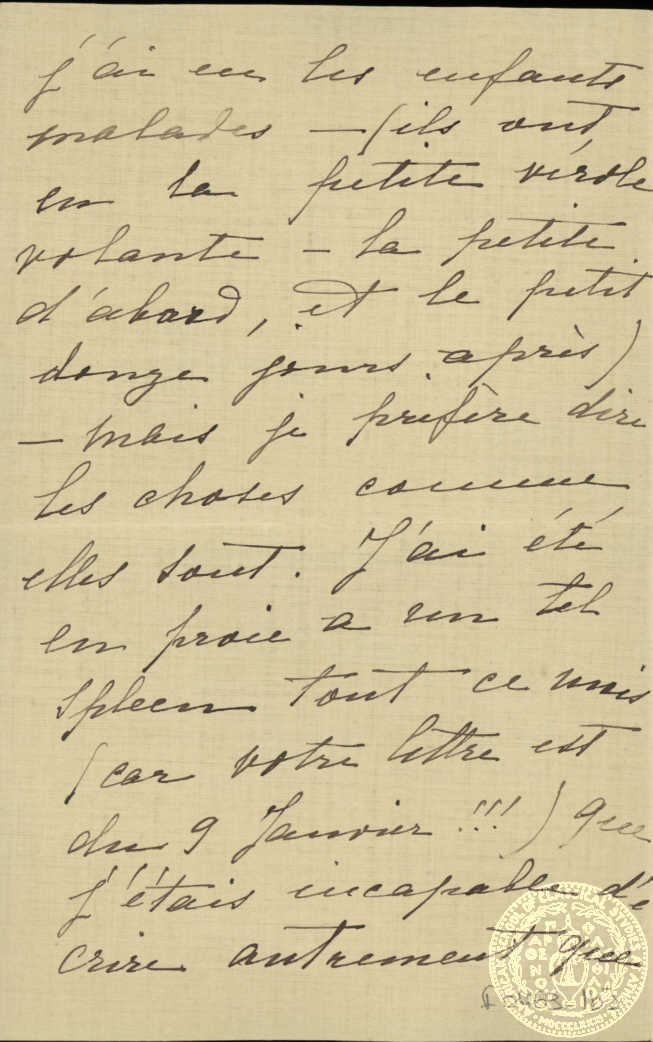 j'ai eu les enfants
malades – (ils ont
eu la petite vérole
volante – la petite
d'abord, et le petit
douze jours après)
– mais je préfère dire
les choses comme
elles sont. J'ai été
en proie a un tel
spleen tout ce mois
(car votre lettre est
du 9 Janvier !!!) que
j'étais incapable d'é
crire autrement que